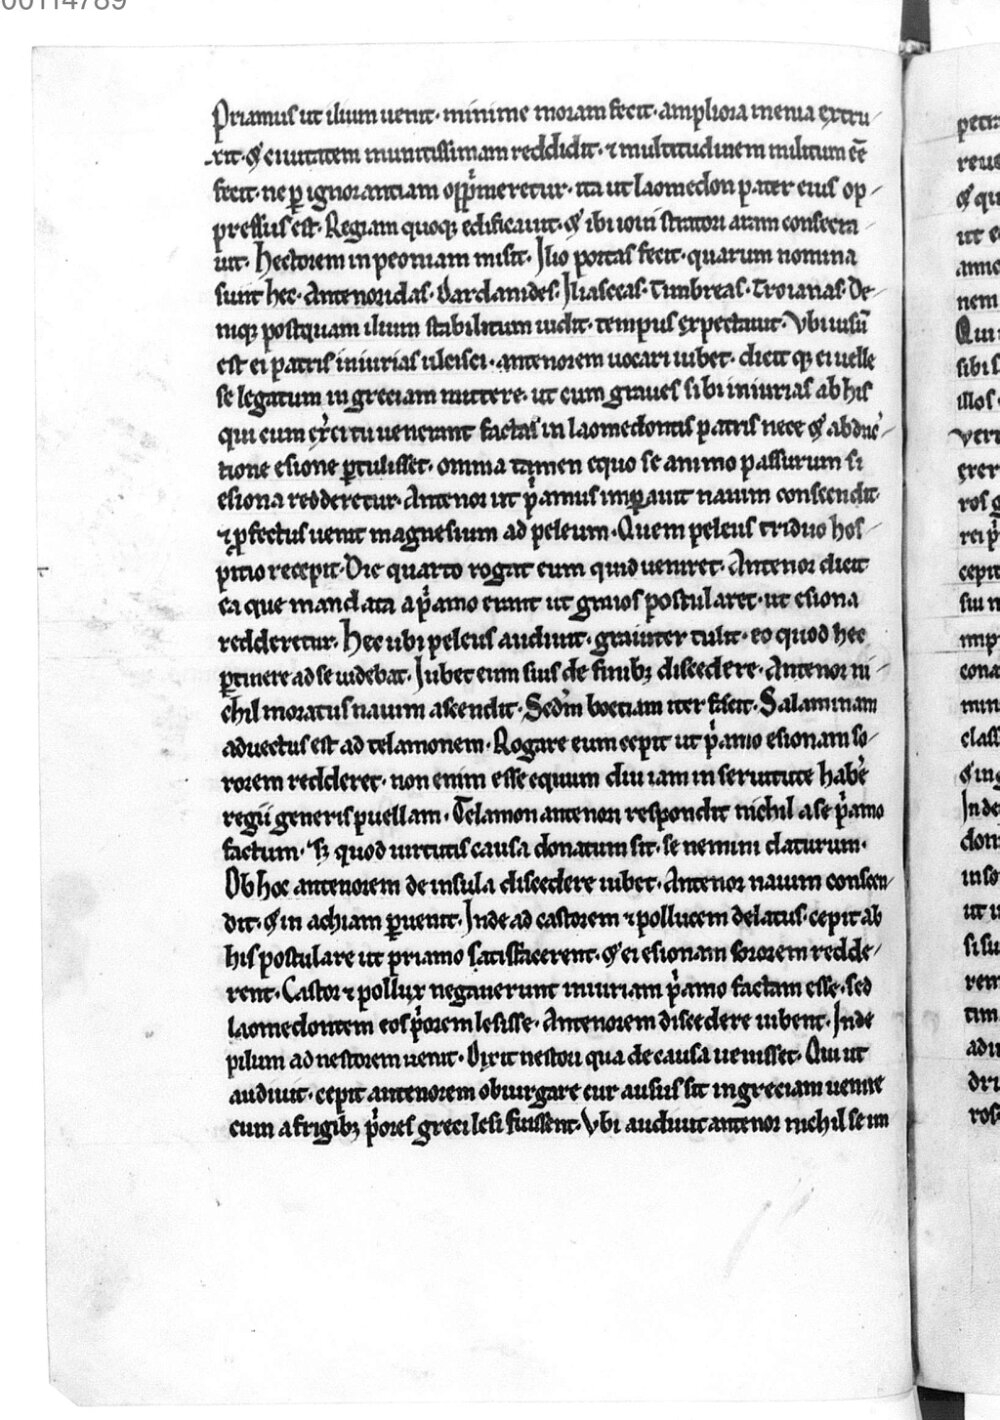 00114789
Priamus ut ilium uenit· minime moram fecit· ampliora menia extru-
xit· & ciuitatem munitissimam reddidit· ⁊ multitudinem militum ēē
fecit· ne ꝑ ignorantiam opp̍meretur· ita ut laomedon pater eius op-
pressus est· Regiam quoq; edificauit· & ibi ioui statori aram consecra-
uit· Hectorem in peoniam misit· Ilio portas fecit· quarum nomina
sunt hec· Antenoridas· Dardanides· Iliasceas· Timbreas· Troianas· De-
niq; postquam ilium stabilitum uidit· tempus expectauit· Vbi uisū
est ei patris iniurias ulcisci· antenorem uocari iubet· dicit q; ei uelle
se legatum in greciam mittere· ut cum graues sibi iniurias ab his
qui cum ex̍citu uenerant factas in laomedontis patris nece & abduc-
tione esione ꝑtulisset· omnia tamen equo se animo passurum si
esiona redderetur· Antenor ut p̍amus imꝑauit nauim conscendit·
⁊ ꝓfectus uenit magnesium ad peleum· Quem peleus triduo hos-
pitio recepit· Die quarto rogat eum quid ueniret· Antenor dicit
ea que mandata a p̍amo erant ut graios postularet· ut esiona
redderetur· Hec ubi peleus audiuit· grauiter tulit· eo quod hec
ꝑtinere ad se uidebat· Iubet eum suis de finib; discedere· Antenor ni-
chil moratus nauim ascendit· Sed̍m boetiam iter fecit· Salaminam
aduectus est ad telamonem· Rogare eum cepit ut p̍amo esionam so-
rorem redderet· non enim esse equum diu iam in seruitute hab̍e
regii generis puellam· Telamon antenori respondit nichil a se p̍amo
factum· s; quod uirtutis causa donatum sit· se nemini daturum·
Ob hoc antenorem de insula discedere iubet· Antenor nauim conscen-
dit· & in achiam ꝑuenit· Inde ad castorem ⁊ pollucem delatus· cepit ab
his postulare ut priamo satisfacerent· & ei esionam sororem redde-
rent· Castor ⁊ pollux negauerunt iniuriam p̍amo factam esse· sed
laomedontem eos p̍orem lesisse· Antenorem discedere iubent· Inde
pilum ad nestorem uenit· Dixit nestori qua de causa uenisset· Qui ut
audiuit· cepit antenorem obiurgare cur ausus sit in greciam uenire
cum a frigib; p̍ores greci lesi fuissent· Vbi audiuit antenor nichil se im